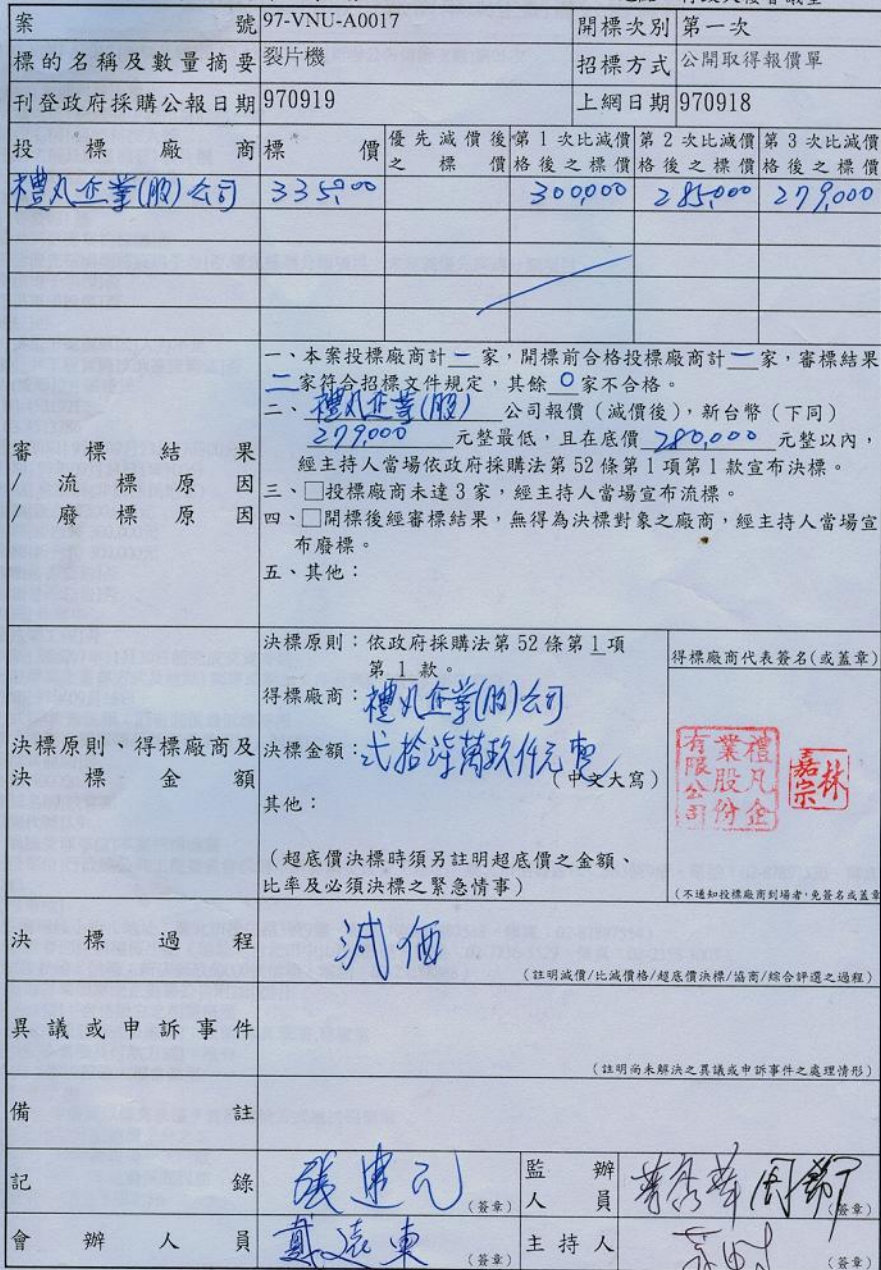 案號 97-VNU-A0017 開標次別 第一次
標的名稱及數量摘要 裂片機 招標方式 公開取得報價單
刊登政府採購公報日期 970919 上網日期 970918
投標廠商 標價 優先減價後之標價 第1次比減價格後之標價 第2次比減價格後之標價 第3次比減價格後之標價
禮凡企業(股)公司 335,000 300,000 285,000 279,000
審標結果/流標原因/廢標原因
一、本案投標廠商計一家,開標前合格投標廠商計一家,審標結果
家符合招標文件規定,其餘0家不合格。
二、禮凡企業(股)公司報價(減價後),新台幣(下同)
279,000元整最低,且在底價280,000元整以內,
經主持人當場依政府採購法第52條第1項第1款宣布決標。
三、□投標廠商未達3家,經主持人當場宣布流標。
四、□開標後經審標結果,無得為決標對象之廠商,經主持人當場宣
布廢標。
五、其他:
決標原則、得標廠商及決標金額
決標原則:依政府採購法第52條第1項
第1款。
得標廠商:禮凡企業(股)公司
決標金額:弍拾柒萬玖仟元整
(中文大寫)
其他:
(超底價決標時須另註明超底價之金額、
比率及必須決標之緊急情事)
得標廠商代表簽名(或蓋章)
禮凡企業股份有限公司
林嘉宗
(不通知投標廠商到場者,免簽名或蓋章
決標過程 減価
(註明減價/比減價格/超底價決標/協商/綜合評選之過程)
異議或申訴事件
(註明尚未解決之異議或申訴事件之處理情形)
備註
記錄 張建元 (簽章) 監辦人員 (簽章)
會辦人員 戴遠東 (簽章) 主持人 (簽章)